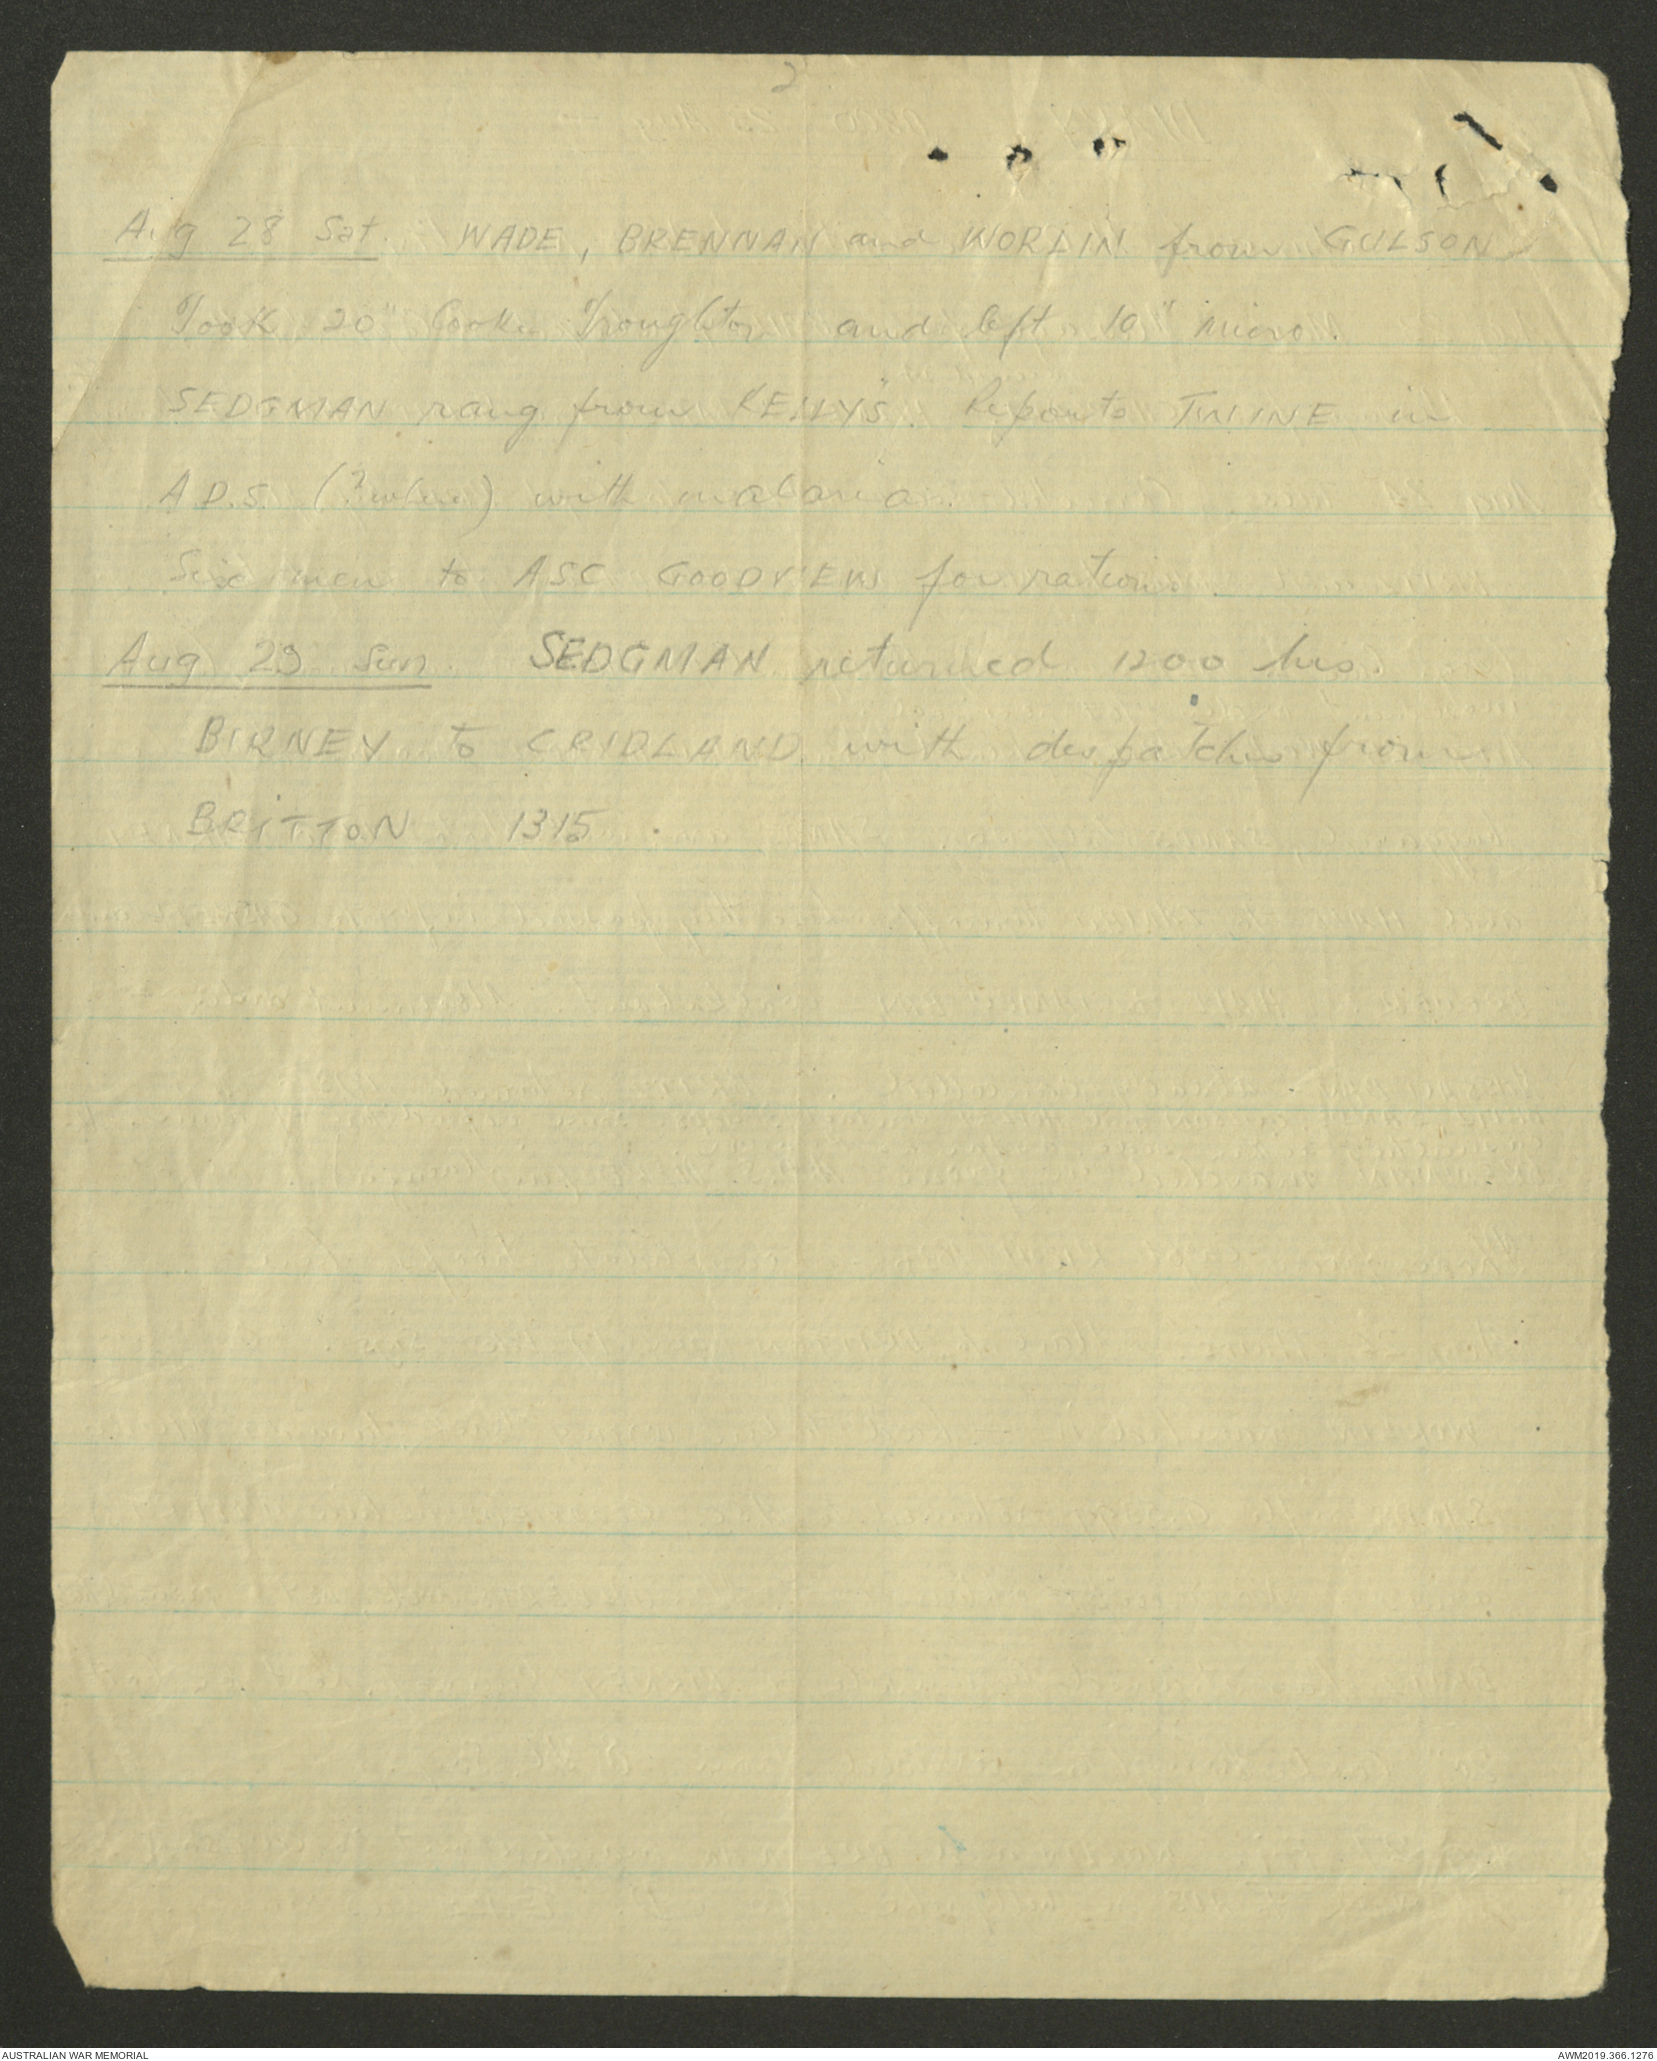 2
Aug 28 Sat. WADE, BRENNAN and WORLIN from GULSON
Took 20" Cooke Troughton and left 10" micro.
SEDGMAN rang from "REILYS". Reports TWINE in
A.D.S. (? where) with malaria.
Six men to ASC GOODVIEW for rations.
Aug 29 Sun. SEDGMAN returned 1200 hrs.
BIRNEY to CRIDLAND with despatches from
BRITTON 1315.
AUSTRALIAN WAR MEMORIAL
AWM2019.366.1276